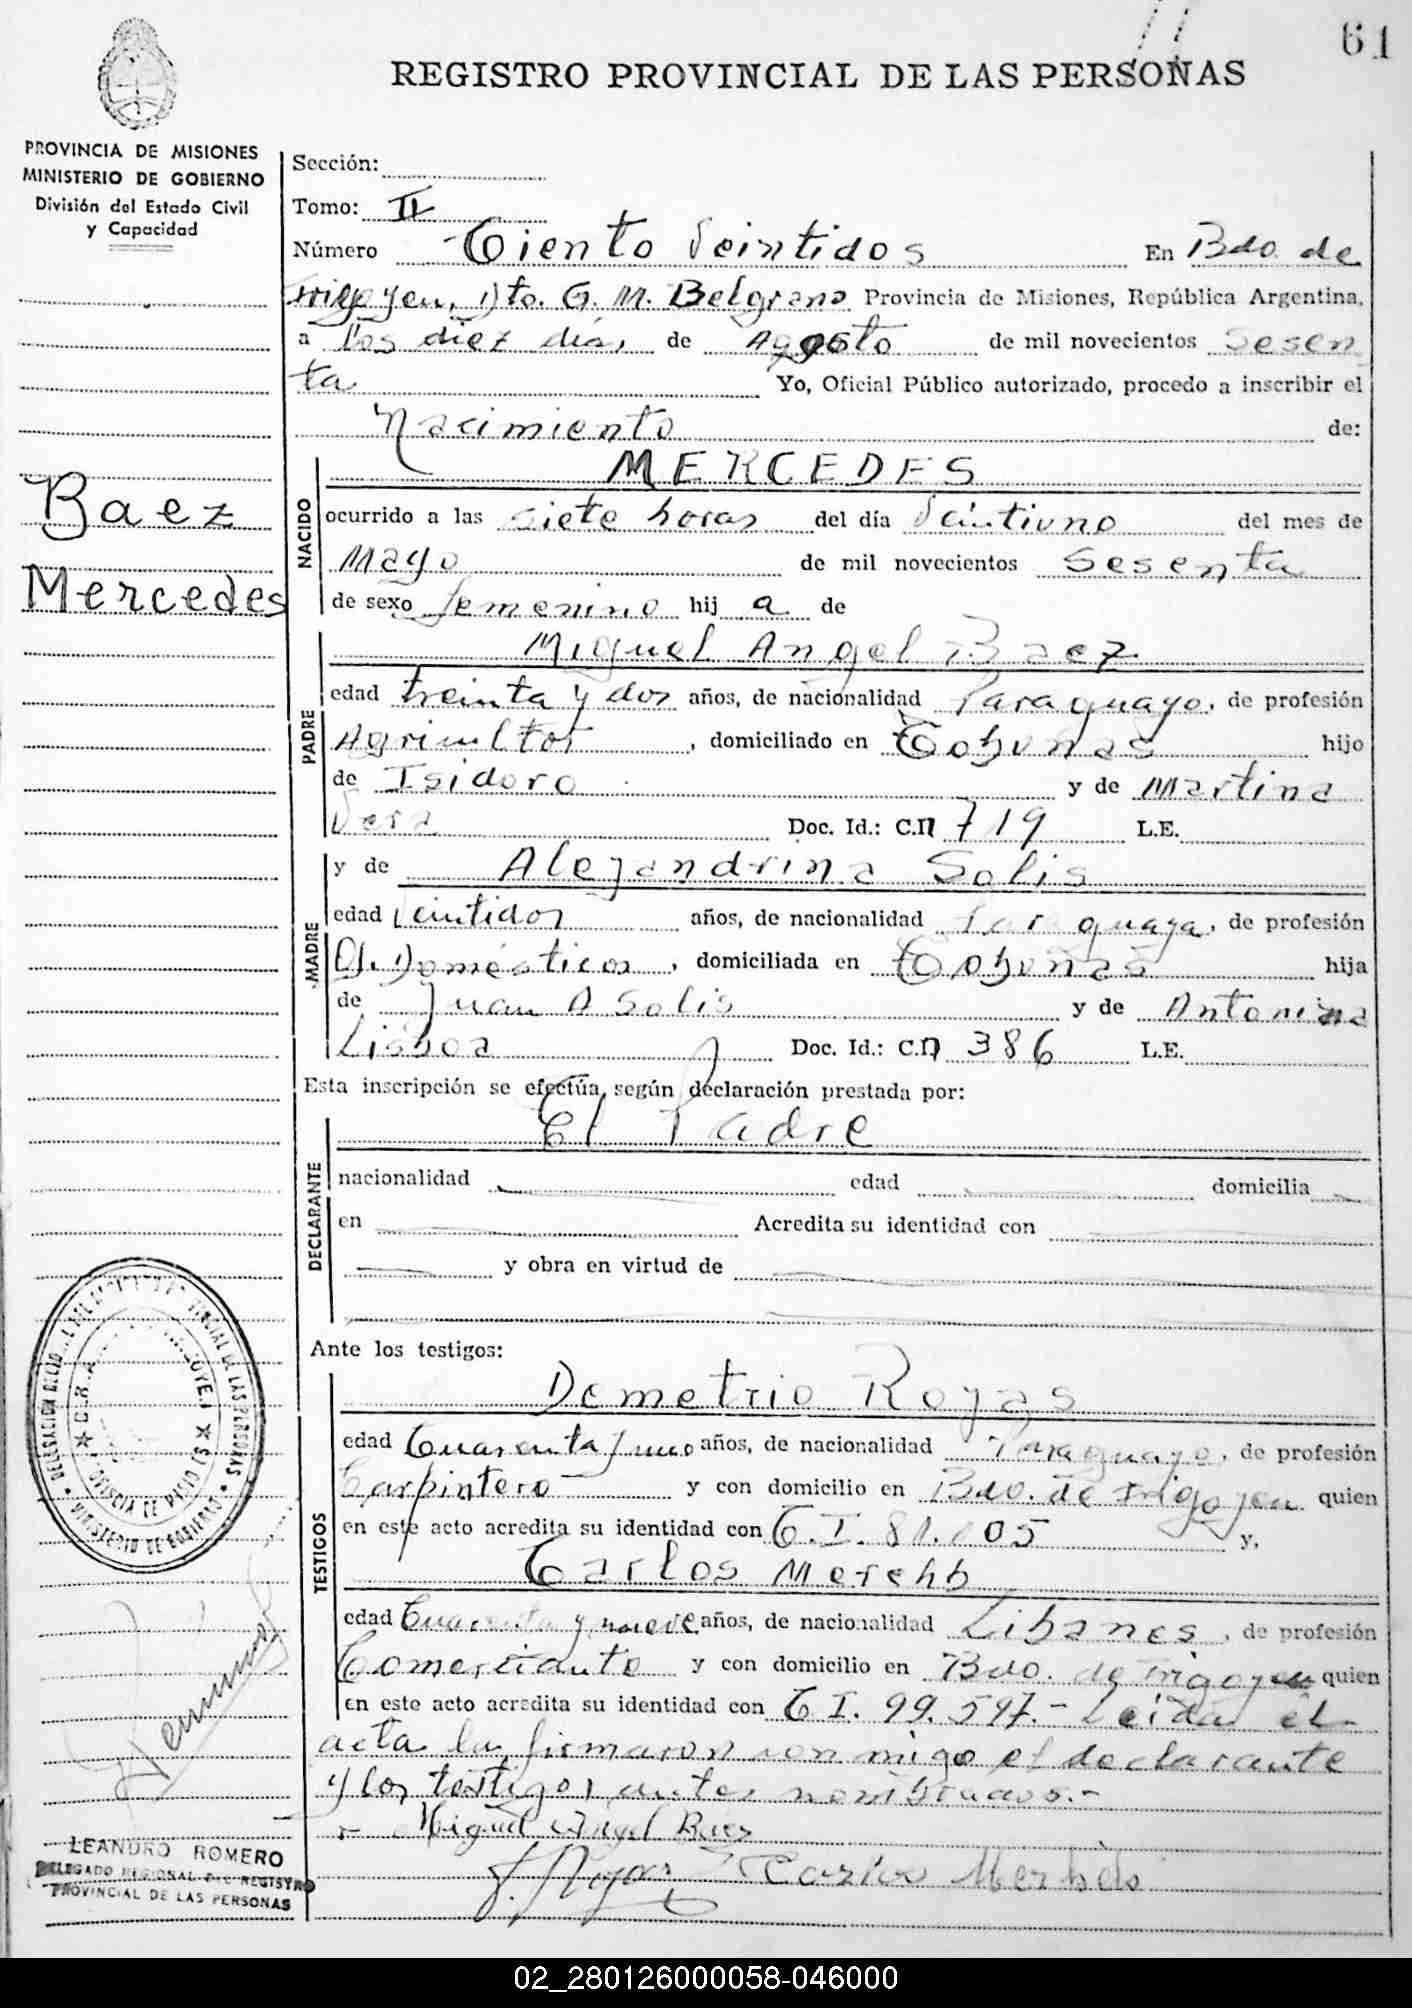 61
REGISTRO PROVINCIAL DE LAS PERSONAS
PROVINCIA DE MISIONES
MINISTERIO DE GOBIERNO
División del Estado Civil
y Capacidad
Baez
Mercedes
Sección:
Tomo: II
Número Ciento Veintidos En Bdo. de
Irigoyen, Dto. G. M. Belgrano Provincia de Misiones, República Argentina,
a los diez días de Agosto de mil novecientos Sesen
ta Yo, Oficial Público autorizado, procedo a inscribir el
Nacimiento de:
NACIDO
MERCEDES
ocurrido a las siete horas del día Veintiuno del mes de
Mayo de mil novecientos Sesenta
de sexo femenino hij a de
PADRE
Miguel Angel Baez
edad treinta y dos años, de nacionalidad Paraguayo, de profesión
Agricultor, domiciliado en Cobuñas hijo
de Isidoro y de Martina
Vera Doc. Id.: C.I 719 L.E.
MADRE
y de Alejandrina Solis
edad Veintidos años, de nacionalidad Paraguaya, de profesión
Q. Domésticos, domiciliada en Cobuñas hija
de Juan A Solis y de Antonina
Lisboa Doc. Id.: C.I 386 L.E.
Esta inscripción se efectúa según declaración prestada por:
DECLARANTE
El Padre
nacionalidad edad domicilia
en Acredita su identidad con
y obra en virtud de
Ante los testigos:
TESTIGOS
Demetrio Rojas
edad Cuarenta y uno años, de nacionalidad Paraguayo, de profesión
Carpintero y con domicilio en Bdo. de Irigoyen quien
en este acto acredita su identidad con C.I. 81.105 y,
Carlos Merehb
edad Cuarenta y nueve años, de nacionalidad Libanes, de profesión
Comerciante y con domicilio en Bdo. de Irigoyen quien
en este acto acredita su identidad con C I. 99.597.- Leída el
acta la firmaron con migo el declarante
y los testigos antes nombrados.-
Miguel Angel Baez
Rojas Carlos
LEANDRO ROMERO
DELEGADO REGIONAL DEL REGISTRO
PROVINCIAL DE LAS PERSONAS
02_280126000058-046000